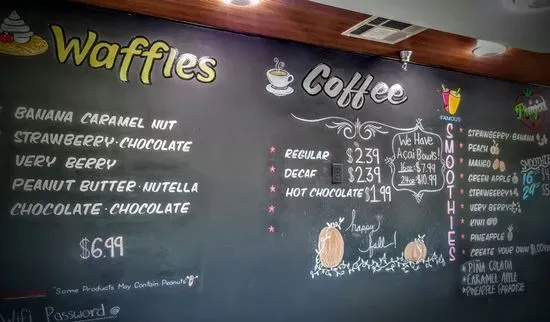 Waffles
BANANA CARAMEL NUT
STRAWBERRY·CHOCOLATE
VERY BERRY
PEANUT BUTTER·NUTELLA
CHOCOLATE·CHOCOLATE
$6.99
*Some Products May Contain Peanuts*
Wifi Password @
Coffee
REGULAR $2.39
DECAF $2.39
HOT CHOCOLATE $1.99
We Have
Açai Bowls!
16oz $7.99
24oz $10.99
happy
fall!
FAMOUS
SMOOTHIES
STRAWBERRY·BANANA
PEACH
MANGO
GREEN APPLE
STRAWBERRY
VERY BERRY
KIWI
PINEAPPLE
CREATE YOUR OWN
*PIÑA COLADA
*CARAMEL APPLE
*PINEAPPLE PARADISE
16
24